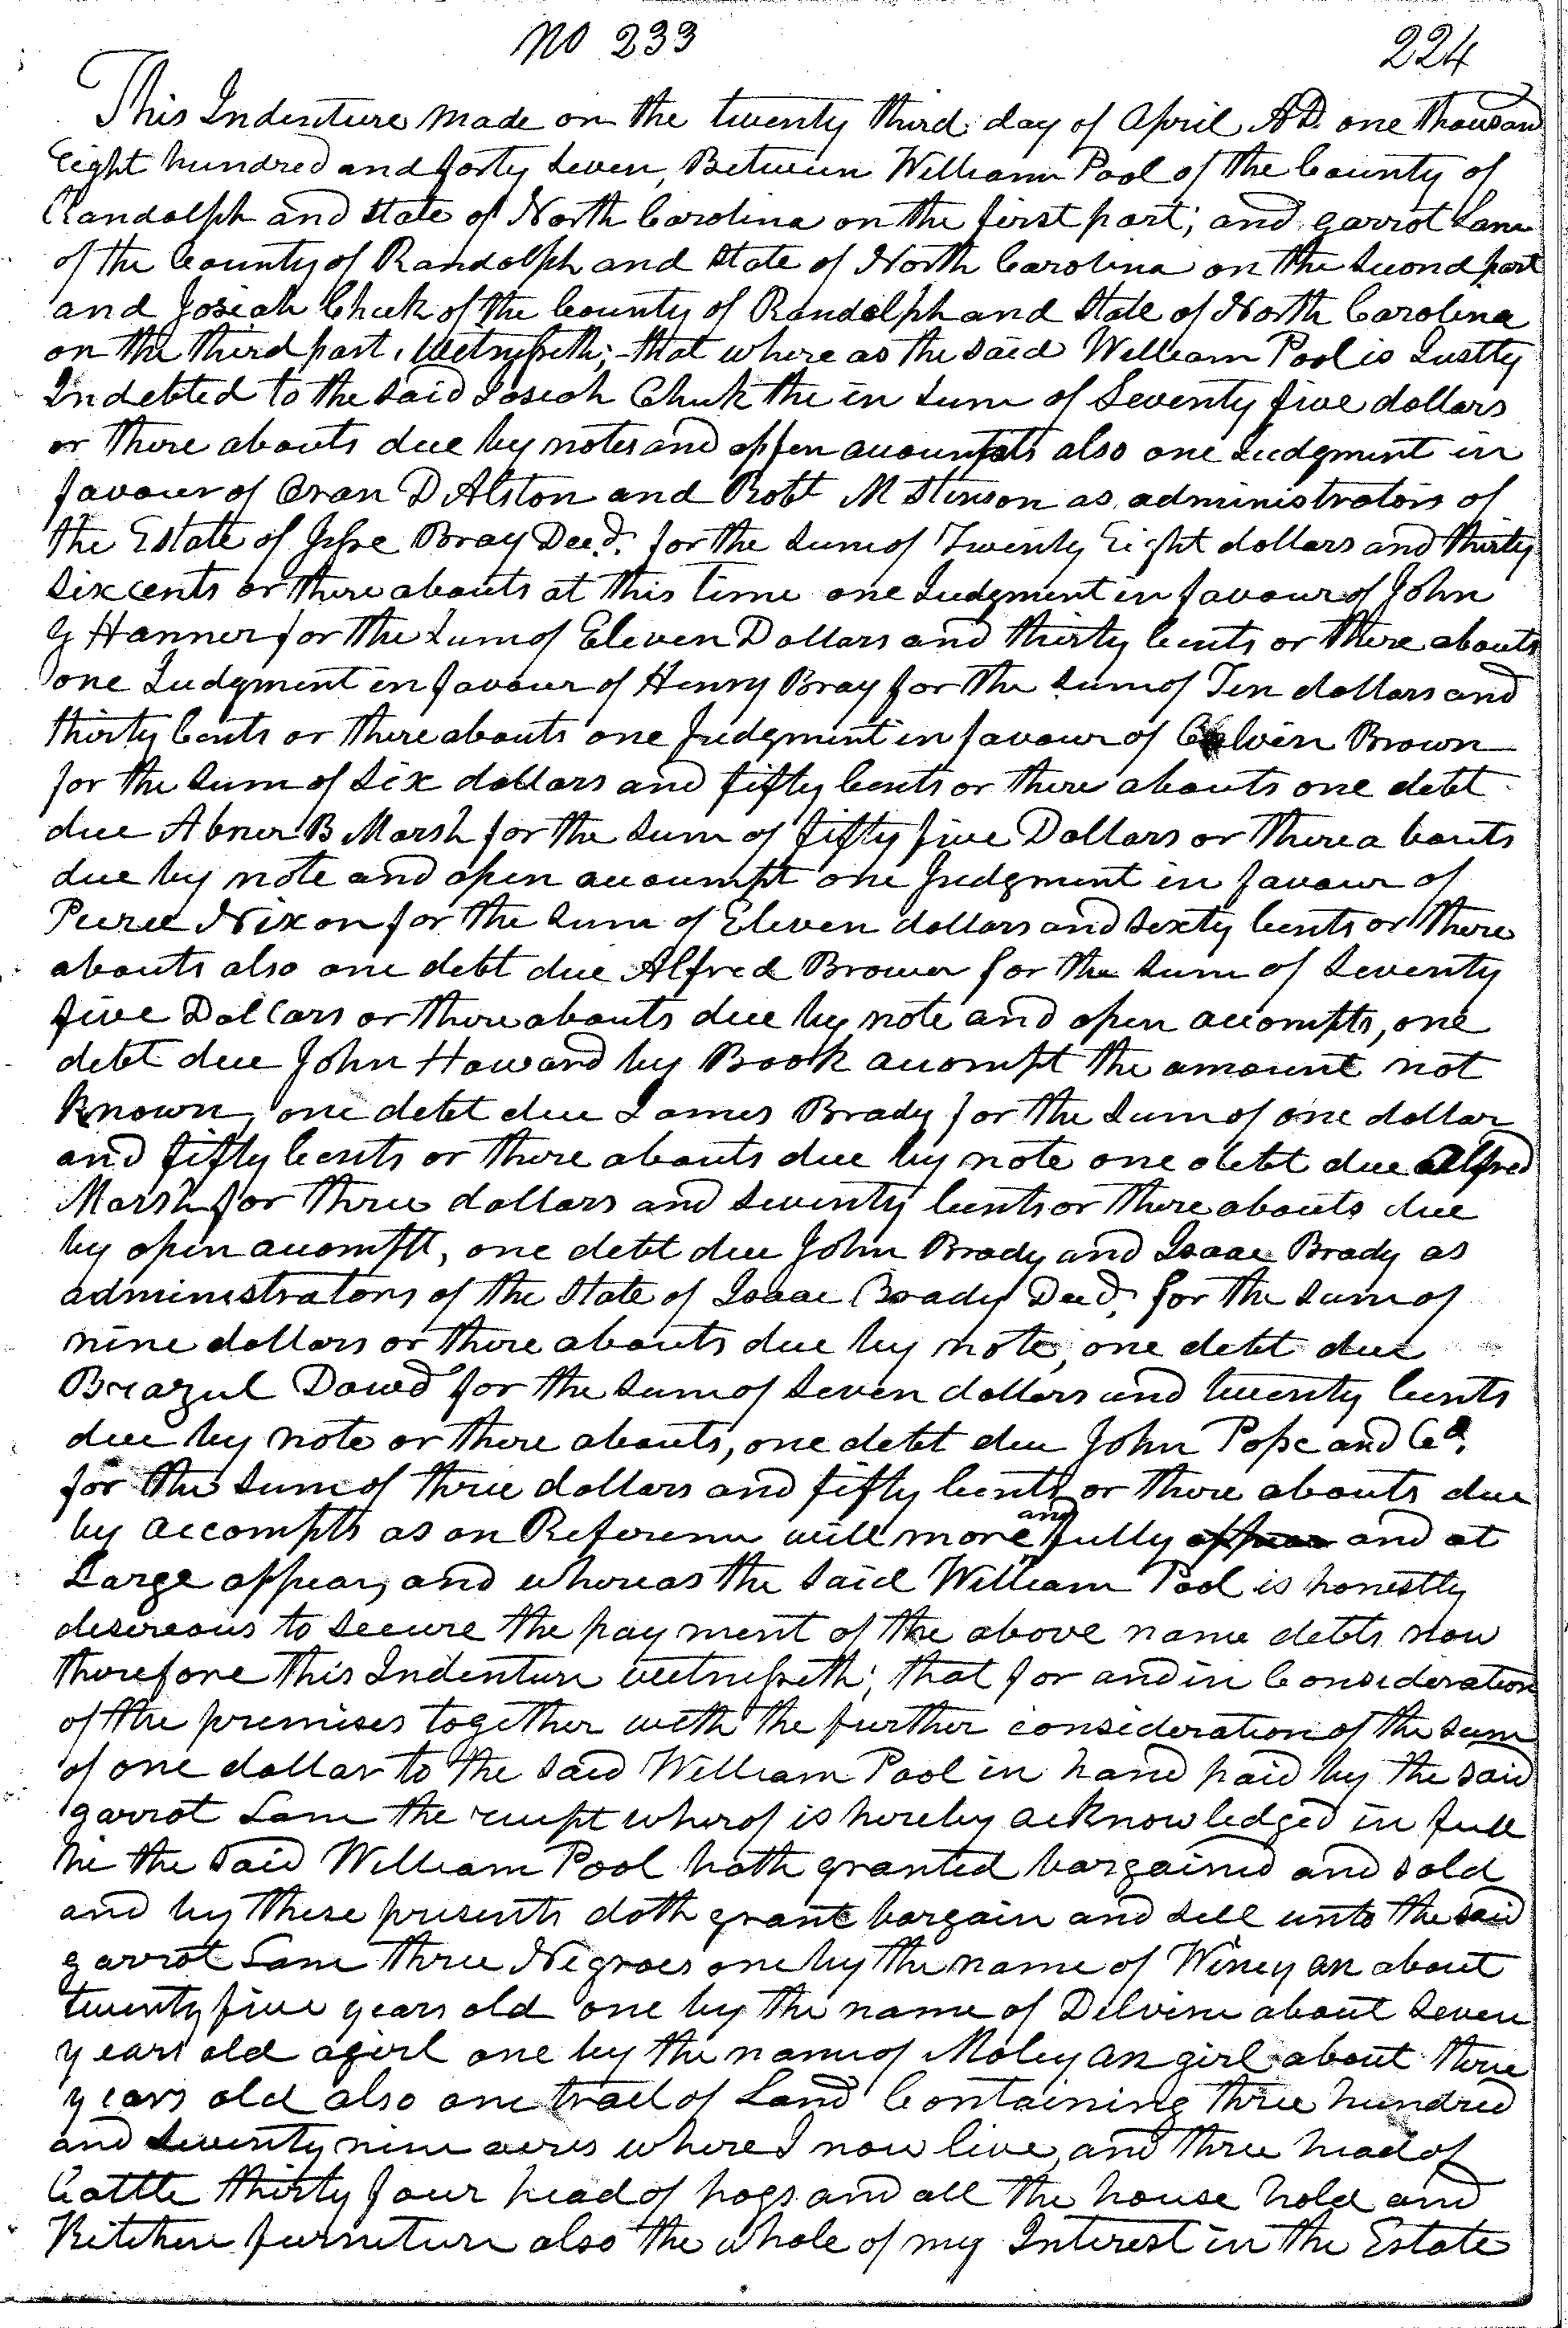 no 233
224
This Indenture made on the twenty third day of April AD. one thousand
Eight hundred and forty Seven, Between William Pool of the County of
Randolph and State of North Carolina on the first part; and garrot Lane
of the County of Randolph and State of North Carolina on the Second part
and Josiah Cheek of the County of Randolph and State of North Carolina
on the third part, Witnesseth; that where as the said William Pool is Justly
Indebted to the Said Josiah Cheek the in Sum of Seventy five dollars
or there abouts due by notes and oppen accounpts also one Judgment in
favour of Oran D Alston and Robt M Stinson as administrators of
the Estate of Jesse Bray Decd. for the Sum of Twenty Eight dollars and thirty
Six cents or there abouts at this time one Judgment in favour of John
G Hanner for the Sum of Eleven Dollars and thirty Cents or there abouts
one Judgment in favour of Henry Bray for the Sum of Ten dollars and
thirty Cents or there abouts one Judgment in favour of Calvin Brown
for the Sum of Six dollars and fifty Cents or there abouts one debt
due Abner B Marsh for the Sum of fifty five Dollars or there a bouts
due by note and open accoumpt one Judgment in favour of
Peirce Nixon for the Sum of Eleven dollars and Sixty Cents or there
abouts also one debt due Alfred Brower for the Sum of Seventy
five Dollars or there abouts due by note and open accompts, one
debt due John Howard by Book accompt the amount not
Known, one debt due James Brady for the Sum of one dollar
and fifty Cents or there abouts due by note one debt due Alfred
Marsh for three dollars and Seventy Cents or there abouts due
by open accomptt, one debt due John Brady and Isaac Brady as
administrators of the State of Isaac Brady Decd, for the Sum of
nine dollars or there abouts due by note, one debt due
Breazul Dowd for the Sum of Seven dollars and twenty Cents
due by note or there abouts, one debt due John Pope and Co,
for the Sum of three dollars and fifty Cents or there abouts due
by accompts as on Referenc will more and fully appear and at
Large appear, and whereas the Said William Pool is honestly
desireous to Secure the pay ment of the above name debts now
therefore this Indenture witnesseth; that for and in Consideration
of the premises together with the further consideration of the Sum
of one dollar to the Said William Pool in hand paid by the said
garrot Lane the reciept wherof is hereby acknowledged in full
he the Said William Pool hath granted bargained and sold
and by these presents doth grant bargain and Sell unto the said
garrot Lane three Negroes one by the name of Winey an about
twenty five years old one by the name of Delvine about Seven
years old a girl one by the name of Moley an girl about three
years old also one tract of Land Containing three hundred
and Seventy nine acres where I now live, and three head of
Cattle thirty four head of hogs and all the house hold and
Kitchen furniture also the whole of my Interest in the Estate